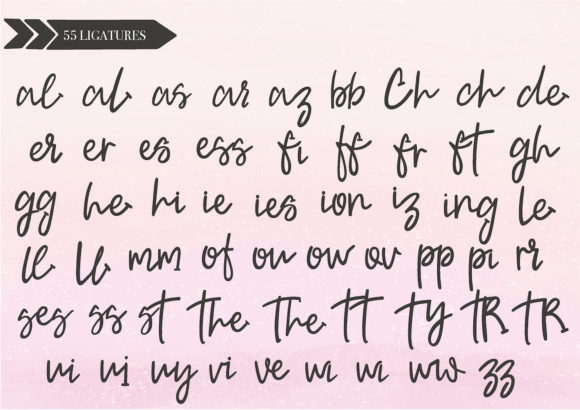 55 LIGATURES
al al as ar az bb Ch ch de
er er es ess fi ff fr ft gh
gg he hi ie ies ion iz ing le
ll ll mm of ou ow ov pp pi ri
ses ss st the The tt ty tR tR
ui uj uy vi ve wi wi ww zz